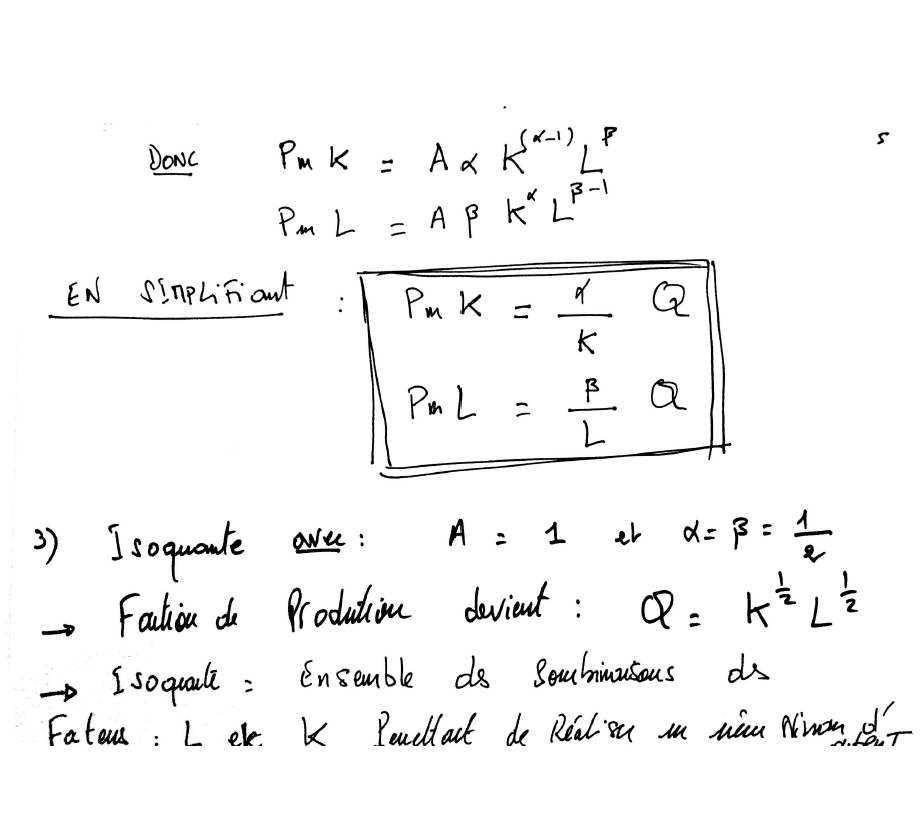 5
DONC PmK = A α K^(α-1) L^β
PmL = A β K^α L^β-1
EN SIMPLIFIant : PmK = α/K Q
PmL = β/L Q
3) Isoquante avec : A = 1 et α = β = 1/2
→ Fonction de Production devient : Q = K^1/2 L^1/2
→ Isoquante = Ensemble des Combinaisons des
Facteurs : L et K Permettant de Réaliser un même Niveau d'